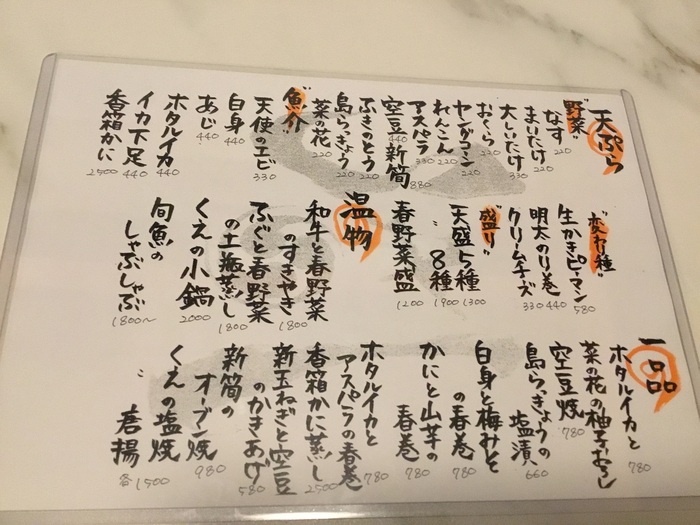 天ぷら
野菜
なす 220
まいたけ 220
大しいたけ 330
おくら 220
ヤングコーン 220
れんこん 220
アスパラ 330
空豆 440 新筍 880
ふきのとう 220
島らっきょう 220
菜の花 220
魚介
天使のエビ 330
白身 440
あじ 440
ホタルイカ 440
イカ下足 440
香箱かに 2500
変わり種
生かきピーマン 580
明太のり巻 440
クリームチーズ 330
盛り
天盛5種 1300
〃 8種 1900
春野菜盛 1200
温物
和牛と春野菜
のすきやき 1800
ふぐと春野菜
の土瓶蒸し 1800
くえの小鍋 2000
旬魚の
しゃぶしゃぶ 1800~
一品
ホタルイカと 780
菜の花の柚子おろし
空豆焼 780
島らっきょうの
塩漬 660
白身と梅みそ
の春巻 780
かにと山芋の
春巻 780
ホタルイカと
アスパラの春巻 780
香箱かに蒸し 2500
新玉ねぎと空豆
のかきあげ 580
新筍の
オーブン焼 980
くえの塩焼
〃 唐揚 各1500